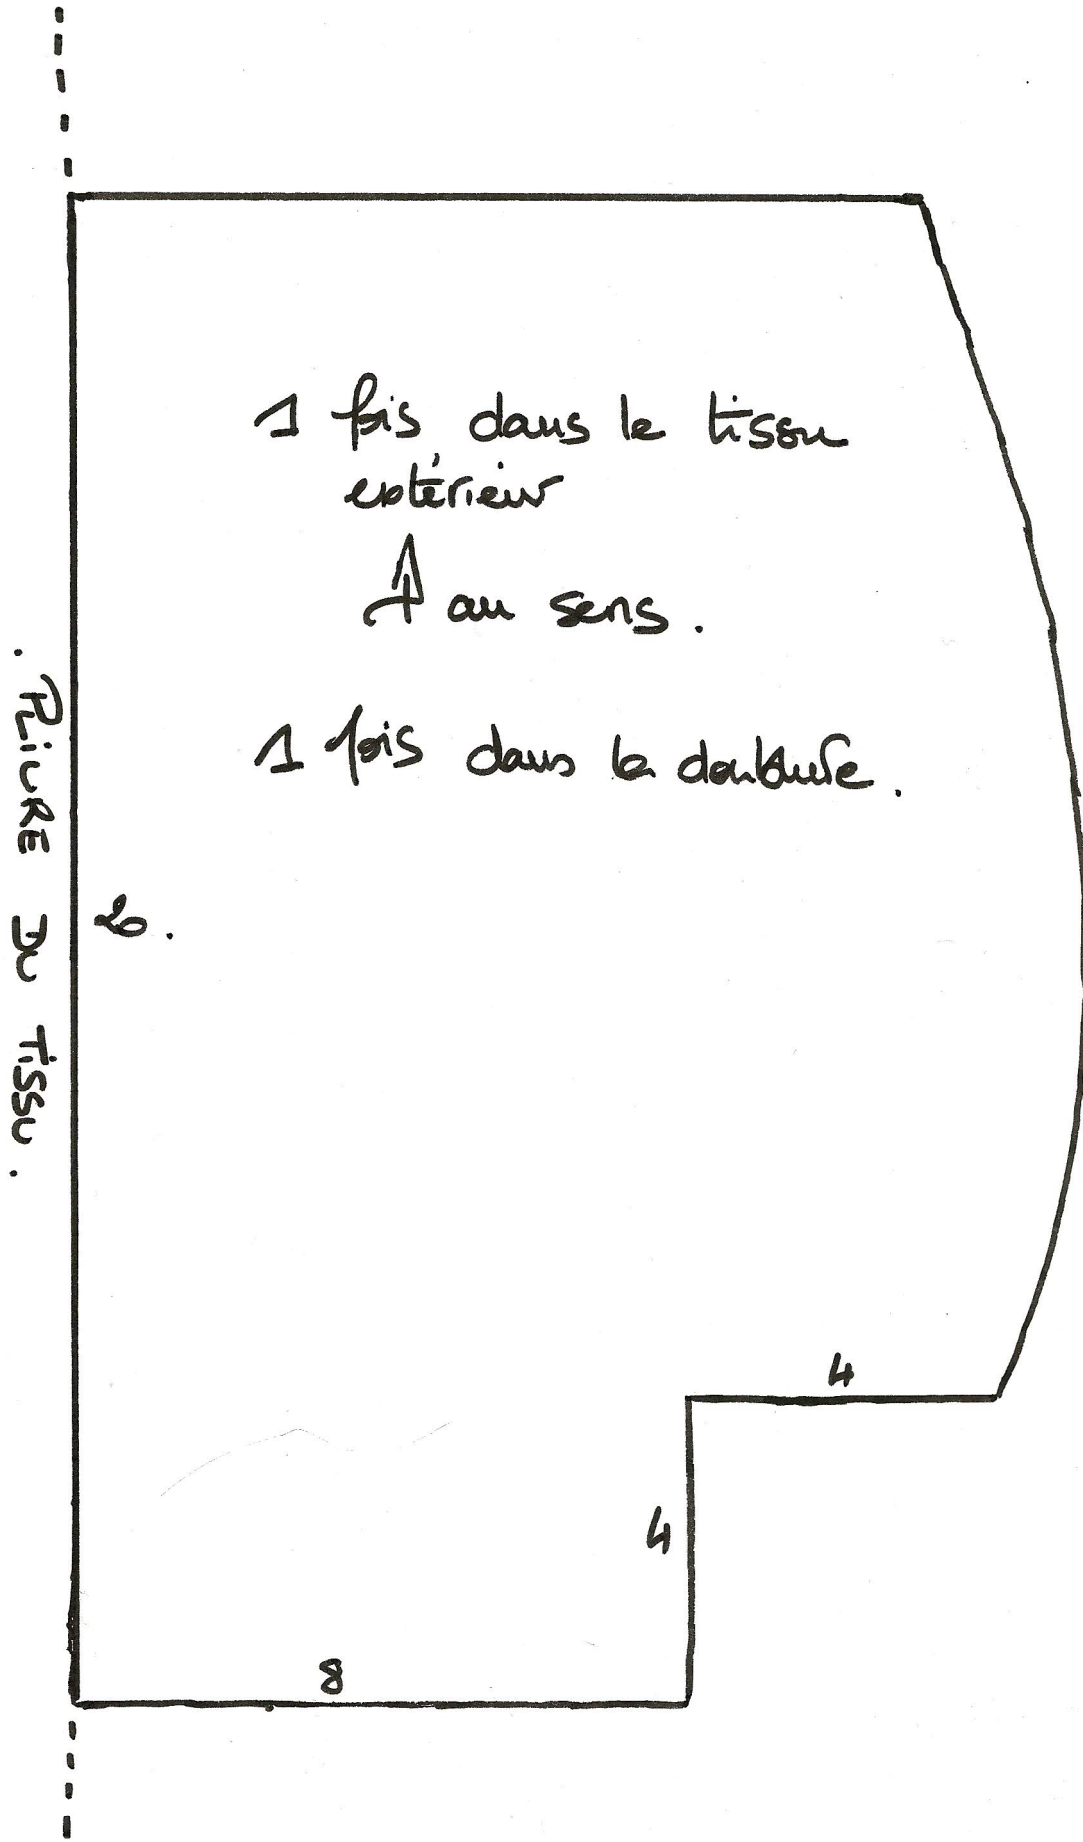 1 fois dans le tissu
extérieur
⚠ au sens.
1 fois dans la doublure.
. PLiURE DU TiSSU.
4
4
8